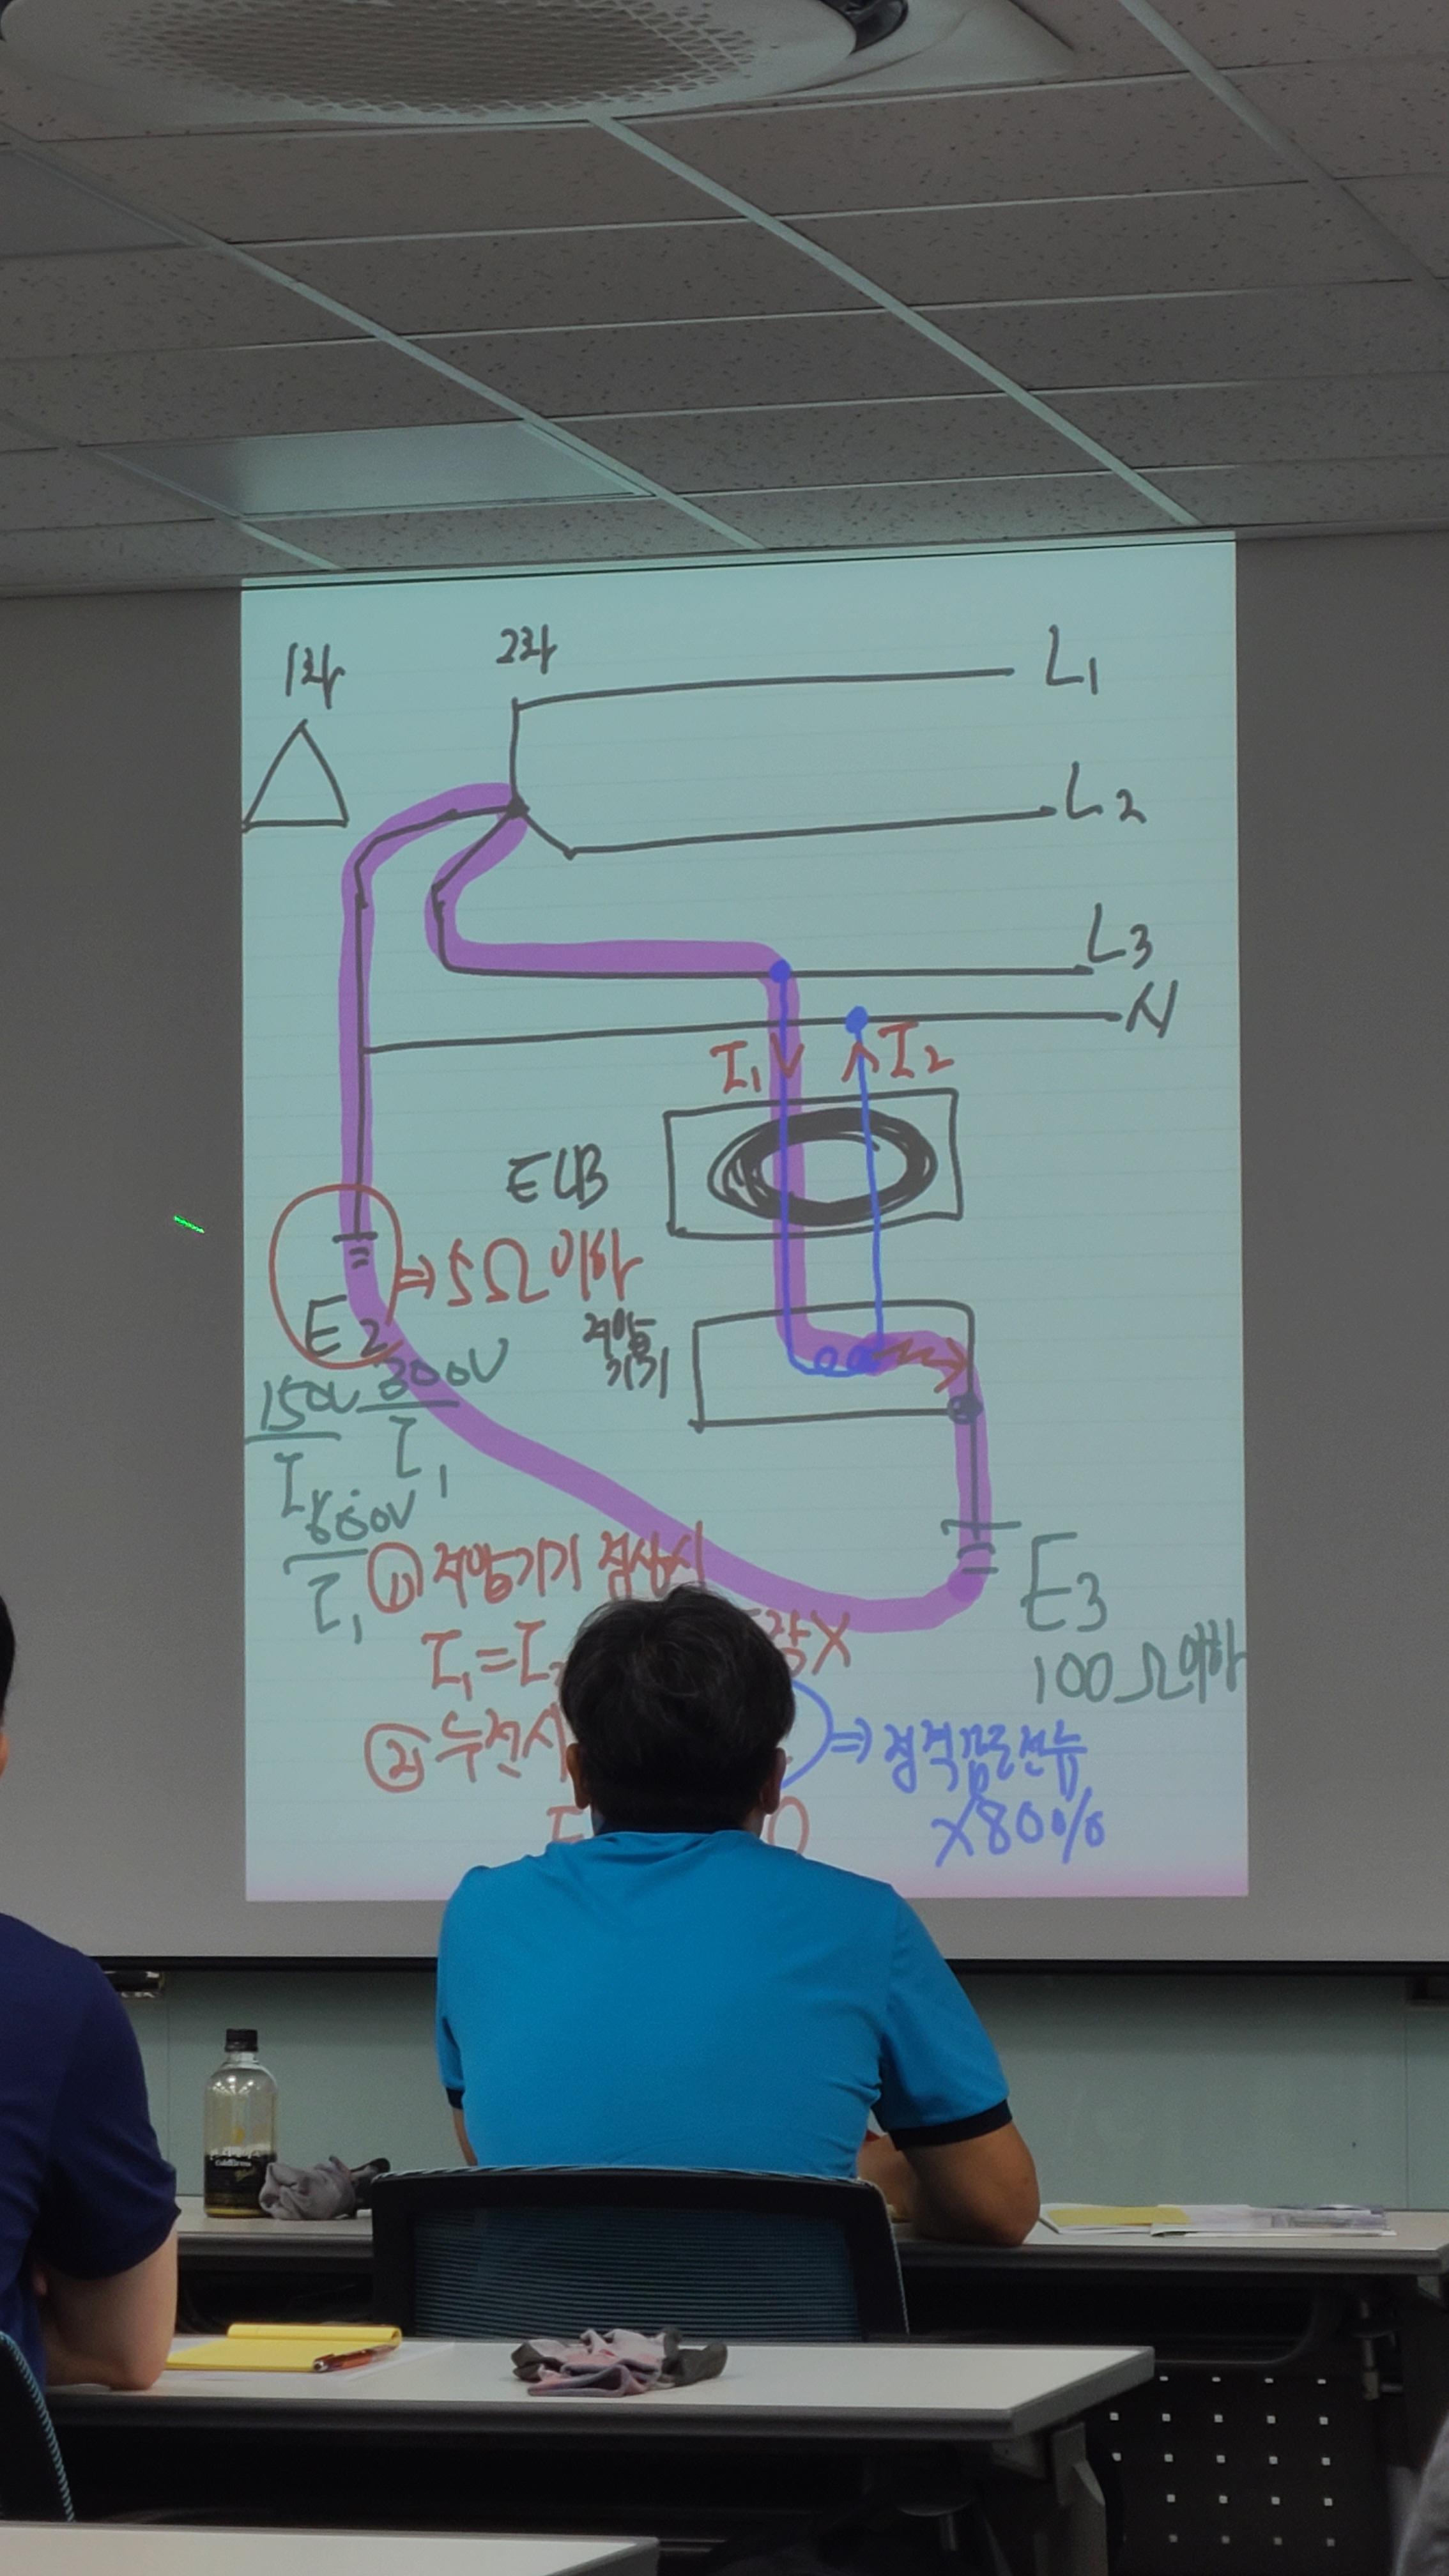 1차
2차
L1
L2
L3
N
I1
I2
ELB
5Ω 이하
E2
저압
기기
150V
I1
300V
I1
600V
I1
E3
100Ω 이하
① 저압기기 정상시
I1=I
X
② 누전시
⇒ 정격감도전류
X80%